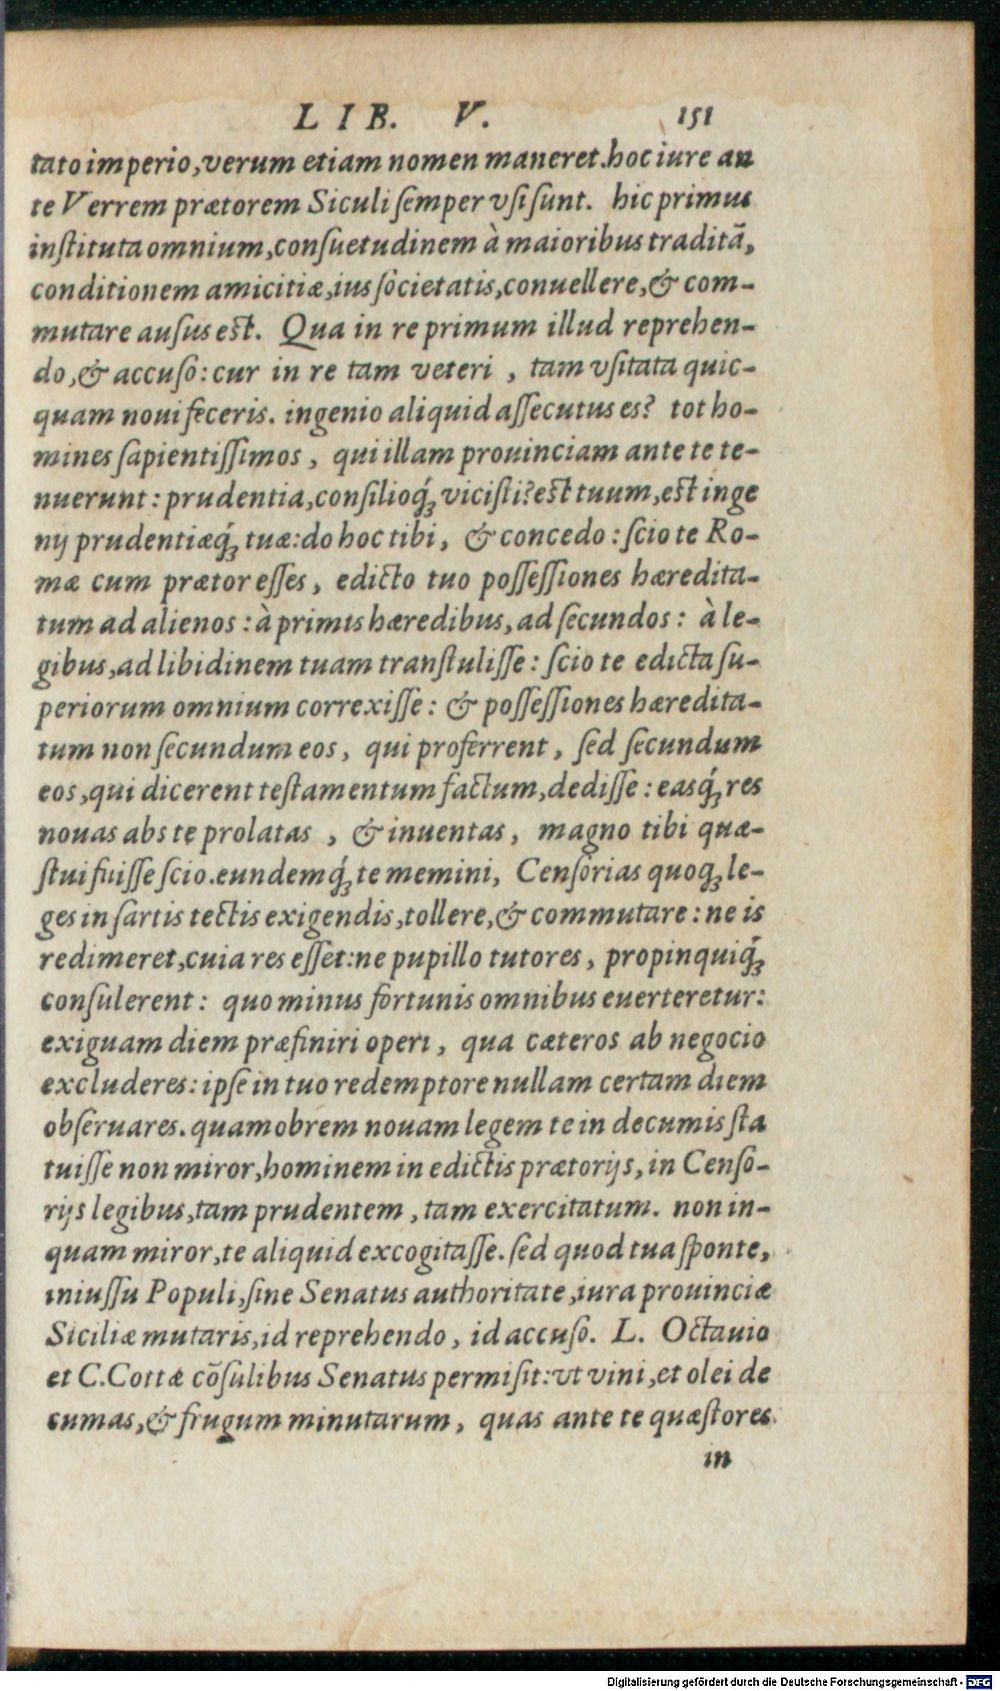 LIB. V. 151
tato imperio, verum etiam nomen maneret. hoc iure an
te Verrem prætorem Siculi ſemper vſi ſunt. hic primus
inſtituta omnium, conſuetudinem à maioribus traditã,
conditionem amicitiæ, ius ſocietatis, conuellere, & com-
mutare auſus eſt. Qua in re primum illud reprehen-
do, & accuſo: cur in re tam veteri, tam vſitata quic-
quam noui feceris. ingenio aliquid aſſecutus es? tot ho-
mines ſapientiſſimos, qui illam prouinciam ante te te-
nuerunt: prudentia, conſilioq́ꝫ viciſti? eſt tuum, eſt inge
nij prudentiæq́ꝫ tuæ: do hoc tibi, & concedo: ſcio te Ro-
mæ cum prætor eſſes, edicto tuo poſſeſſiones hæredita-
tum ad alienos: à primis hæredibus, ad ſecundos: à le-
gibus, ad libidinem tuam tranſtuliſſe: ſcio te edicta ſu-
periorum omnium correxiſſe: & poſſeſſiones hæredita-
tum non ſecundum eos, qui proferrent, ſed ſecundum
eos, qui dicerent teſtamentum factum, dediſſe: easq́ꝫ res
nouas abs te prolatas, & inuentas, magno tibi quæ-
ſtui fuiſſe ſcio. eundemq́ꝫ te memini, Cenſorias quoqꝫ le-
ges in ſartis tectis exigendis, tollere, & commutare: ne is
redimeret, cuia res eſſet: ne pupillo tutores, propinquiq́ꝫ
conſulerent: quo minus fortunis omnibus euerteretur:
exiguam diem præfiniri operi, qua cæteros ab negocio
excluderes: ipſe in tuo redemptore nullam certam diem
obſeruares. quamobrem nouam legem te in decumis ſta
tuiſſe non miror, hominem in edictis prætorijs, in Cenſo-
rijs legibus, tam prudentem, tam exercitatum. non in-
quam miror, te aliquid excogitaſſe. ſed quod tua ſponte,
iniuſſu Populi, ſine Senatus authoritate, iura prouinciæ
Siciliæ mutaris, id reprehendo, id accuſo. L. Octauio
et C. Cottæ cõſulibus Senatus permiſit: vt vini, et olei de
cumas, & frugum minutarum, quas ante te quæſtores
in
Digitalisierung gefördert durch die Deutsche Forschungsgemeinschaft - DFG